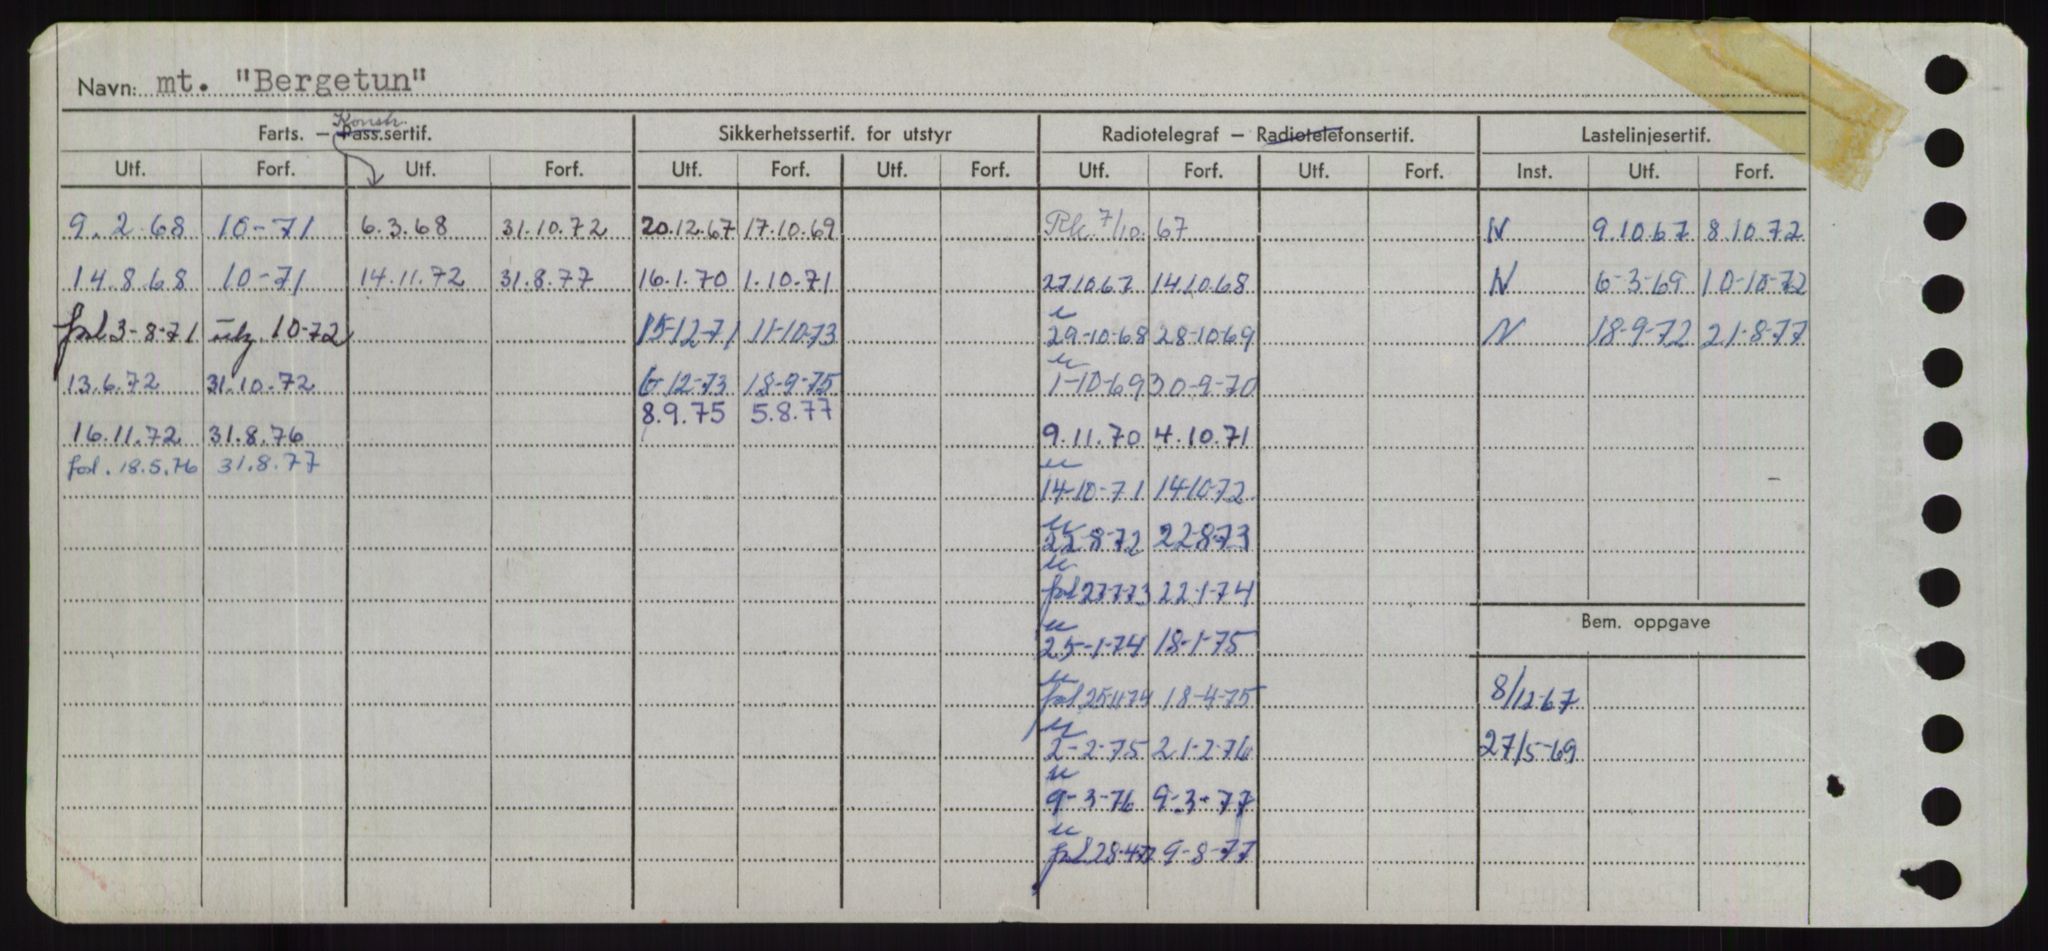 Navn: mt. "Bergetun"
Farts. – Pass.sertif. Konstr. Sikkerhetssertif. for utstyr Radiotelegraf – Radiotelefonsertif. Lastelinjesertif.
Utf. Forf. Utf. Forf. Utf. Forf. Utf. Forf. Utf. Forf. Utf. Forf. Inst. Utf. Forf.
9.2.68 10-71 6.3.68 31.10.72 20.12.67 17.10.69 Rk. 7/10.67 N 9.10.67 8.10.72
14.8.68 10-71 14.11.72 31.8.77 16.1.70 1.10.71 27.10.67 14.10.68 N 6-3-69 10-10-72
forl 3-8-71 utg. 10-72 15-12-71 11-10-73 29-10-68 28-10-69 N 18-9-72 21-8-77
13.6.72 31.10.72 6-12-73 18-9-75 1-10-69 30-9-70
8.9.75 5.8.77
16.11.72 31.8.76 9.11.70 4.10.71
forl. 18.5.76 31.8.77
14-10-71 14-10-72
22-8-73
forl 27-7-73 22-1-74
Bem. oppgave
25-1-74 18-1-75
forl 18-4-75 8/12-67
2-2-75 21-2-76 27/5-69
9-3-76 9-3-77
forl 28-4-77 9-8-77